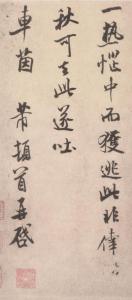 一熱惱中而獲逃此非倖
秋可去此遂吐
車茵 芾頓首再啓